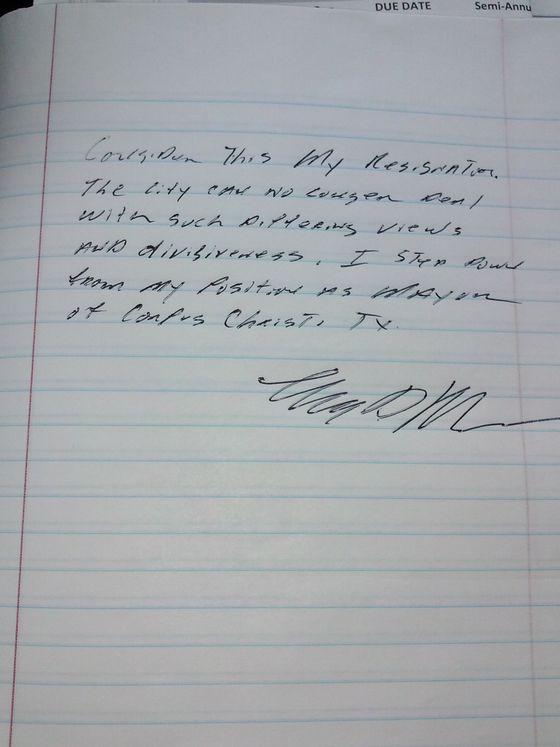 DUE DATE Semi-Annu
Consider This My Resignation.
The city can no longer Deal
with such Differing views
and divisiveness. I step down
from my position as Mayor
of Corpus Christi Tx.